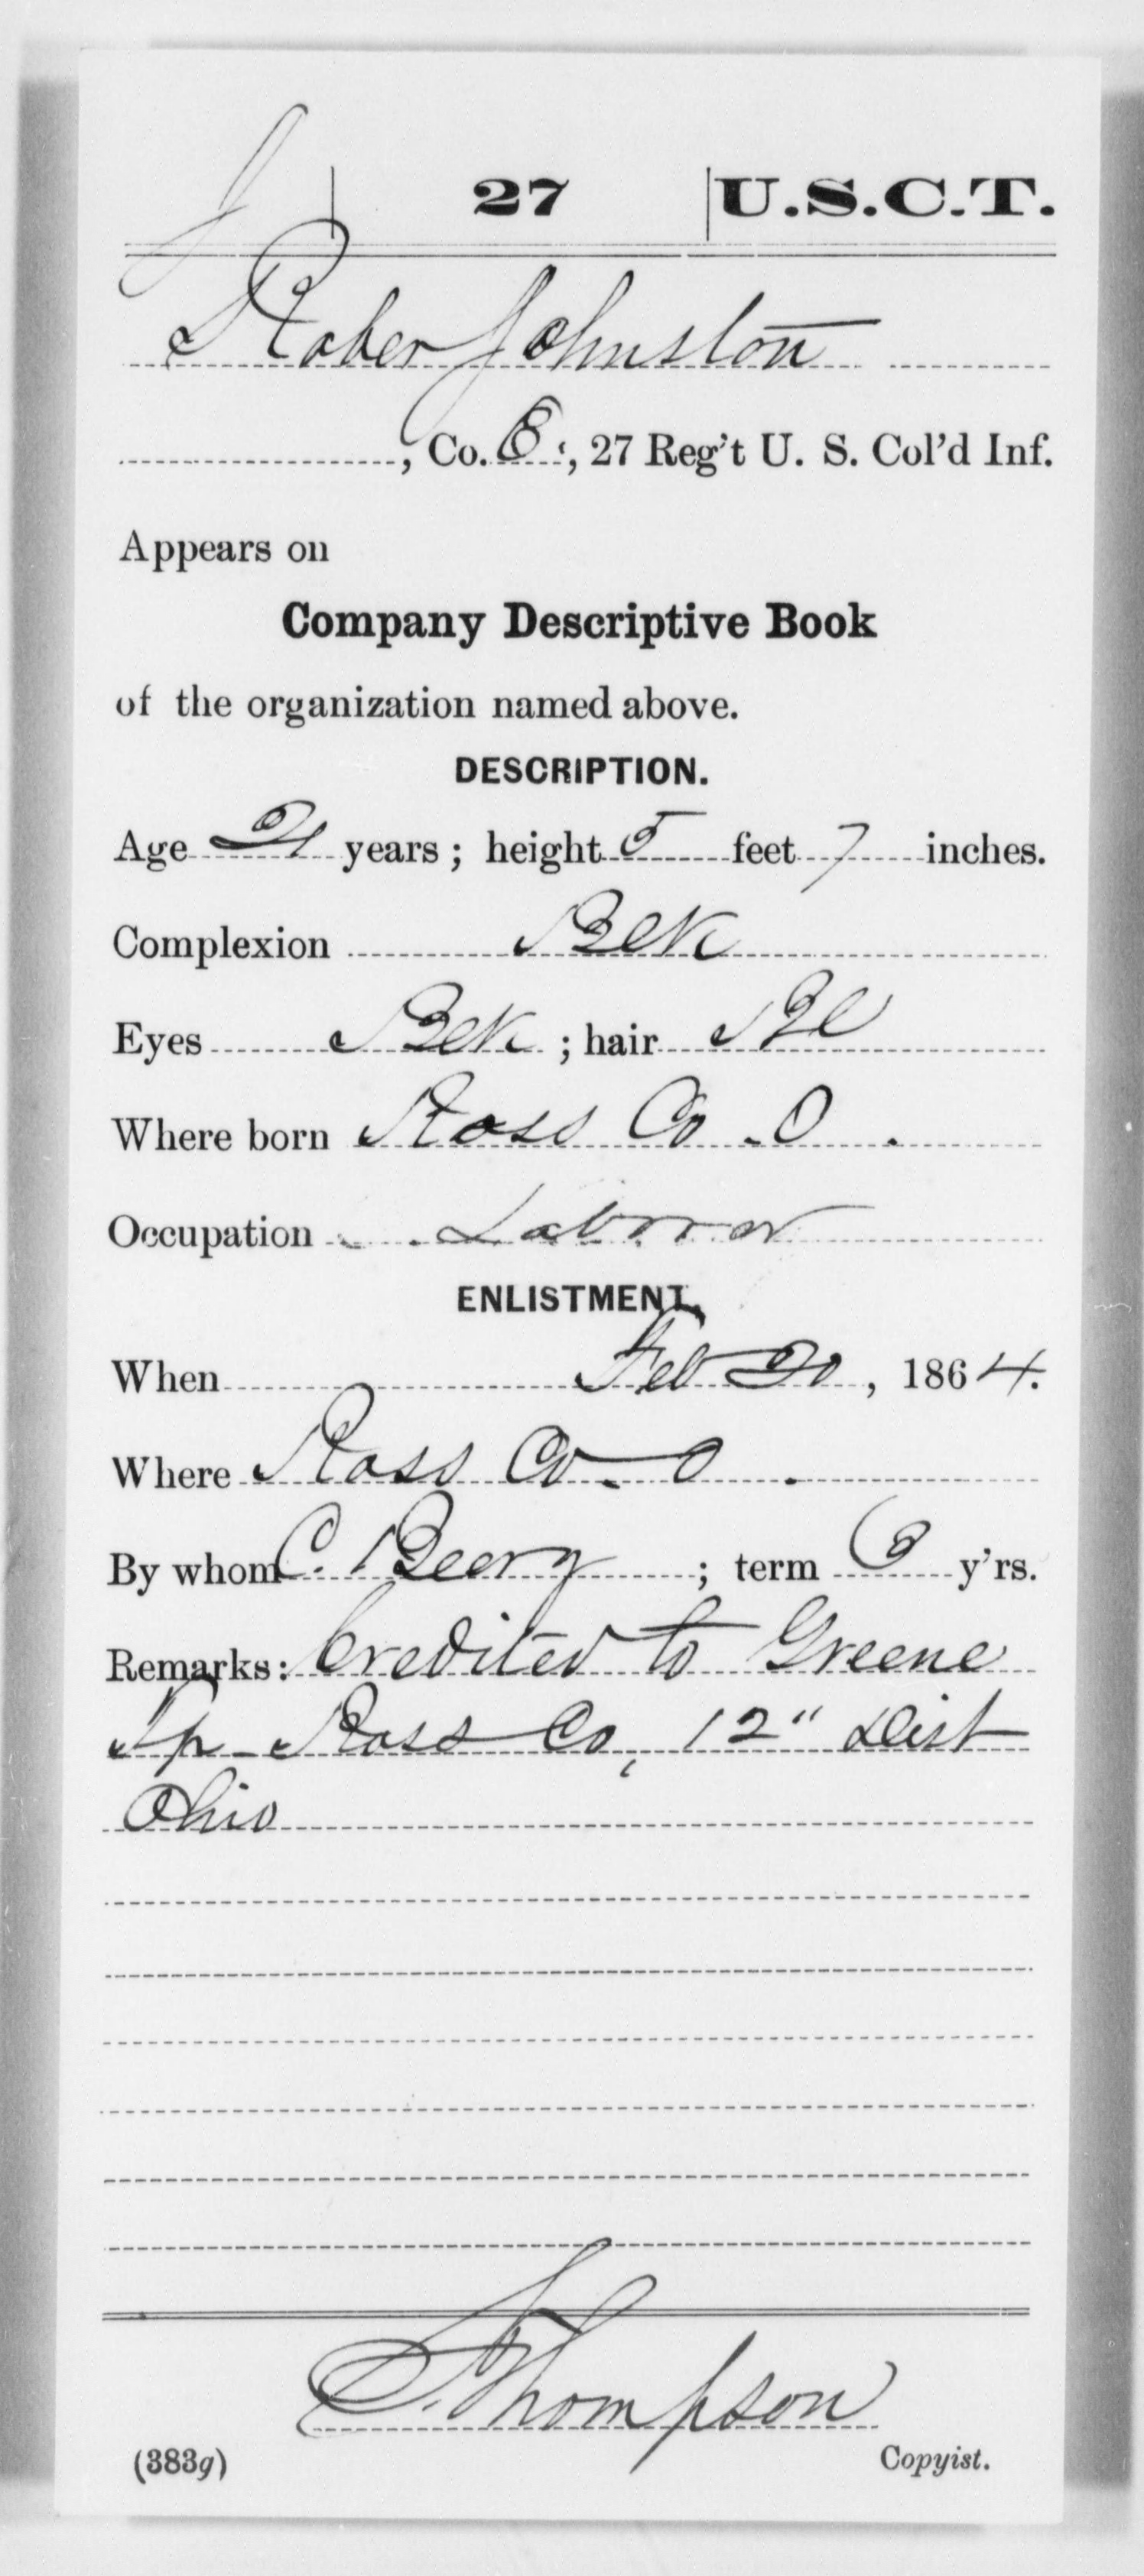 J | 27 | U.S.C.T.
Rober Johnston
, Co. E, 27 Reg't U. S. Col'd Inf.
Appears on
Company Descriptive Book
of the organization named above.
DESCRIPTION.
Age 21 years; height 5 feet 7 inches.
Complexion Blk
Eyes Blk; hair Bl
Where born Ross Co. O.
Occupation Laborer
ENLISTMENT.
When Feb 20, 1864.
Where Ross Co. O.
By whom C. Beery; term 3 y'rs.
Remarks: Credited to Greene
Tp- Ross Co, 12" Dist
Ohio
Thompson
(383g) Copyist.